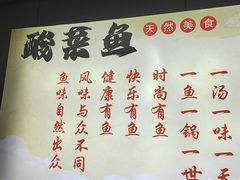 酸菜鱼
天然美食
一汤一味一
一鱼一锅一世
时尚有鱼
快乐有鱼
健康有鱼
风味与众不同
鱼味自然出众